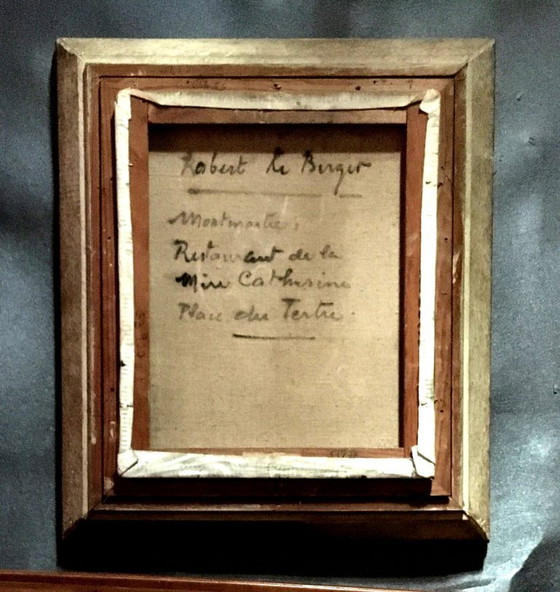 Robert Le Berger
Montmartre:
Restaurant de la
Mère Catherine
Place du Tertre.